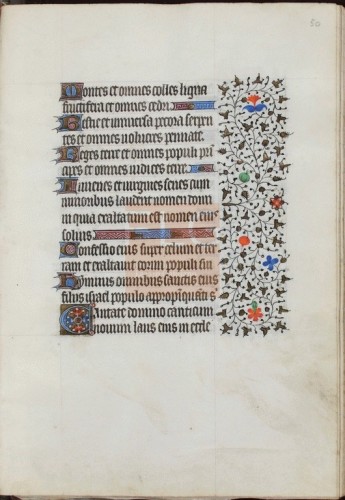 50
Montes et omnes colles ligna
fructifera et omnes cedri.
Bestie et universa pecora serpen
tes et omnes volucres pennate.
Reges terre et omnes populi prin
cipes et omnes iudices terre.
Iuvenes et virgines senes cum
iunioribus laudent nomen domini
quia exaltatum est nomen eius
solius.
Confessio eius super celum et ter
ram et exaltavit cornu populi sui
Hymnus omnibus sanctis eius
filiis israel populo appropinquanti s
Cantate domino canticum
novum laus eius in eccle